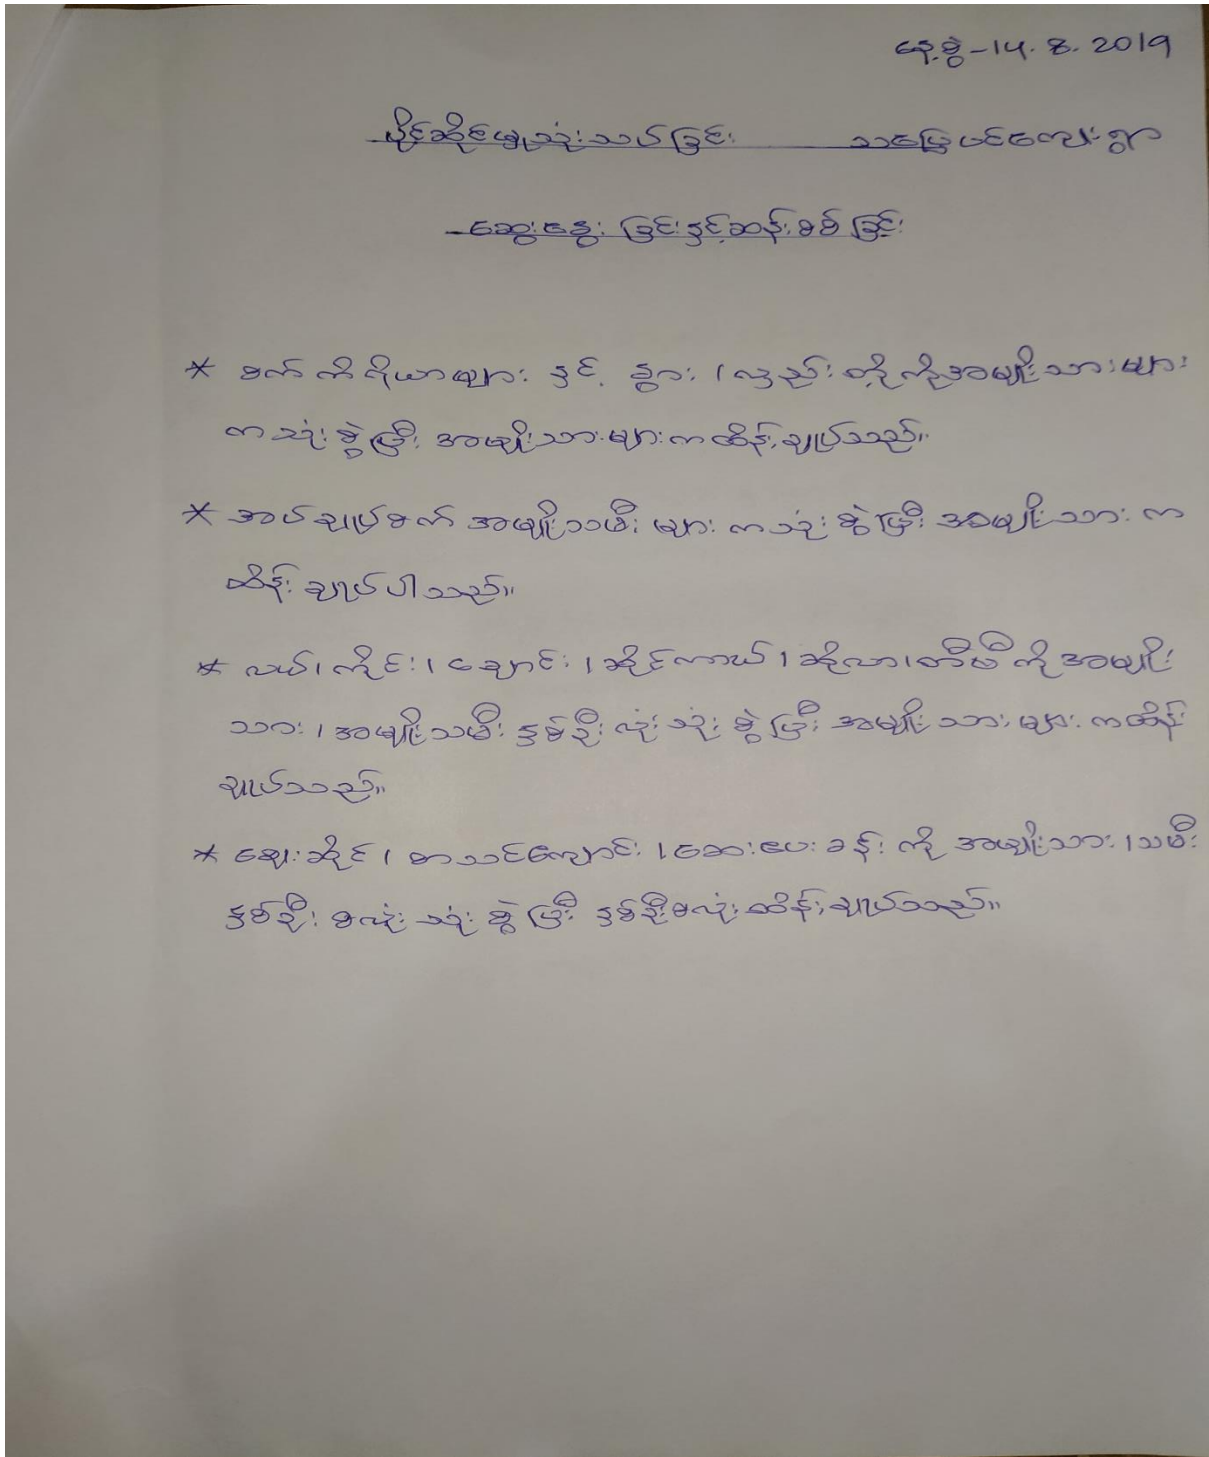 နေ့စွဲ-14.8.2019
ပိုင်ဆိုင်မှုသုံးသပ်ခြင်း သပြေပင်ကျေးရွာ
ဆွေးနွေးခြင်းနှင့်ဆန်းစစ်ခြင်း
* စက်ကိရိယာများ နှင့် နွား၊ လှည်းတို့ကိုအမျိုးသားများ
ကသုံးစွဲပြီး အမျိုးသားများကထိန်းချုပ်သည်။
* အပ်ချုပ်စက် အမျိုးသမီးများ ကသုံးစွဲပြီး အမျိုးသား က
ထိန်းချုပ်ပါသည်။
* လယ်၊ ကိုင်း၊ ချောင်း၊ ဆိုင်ကယ်၊ ဆိုလာ၊ တီဗီ ကိုအမျိုး
သား၊ အမျိုးသမီး နှစ်ဦးလုံး သုံးစွဲပြီး အမျိုးသားများ ကထိန်း
ချုပ်သည်။
* ဈေးဆိုင်၊ စာသင်ကျောင်း၊ ဆေးပေးခန်း ကို အမျိုးသား၊ သမီး
နှစ်ဦးစလုံး သုံးစွဲပြီး နှစ်ဦးစလုံးထိန်းချုပ်သည်။